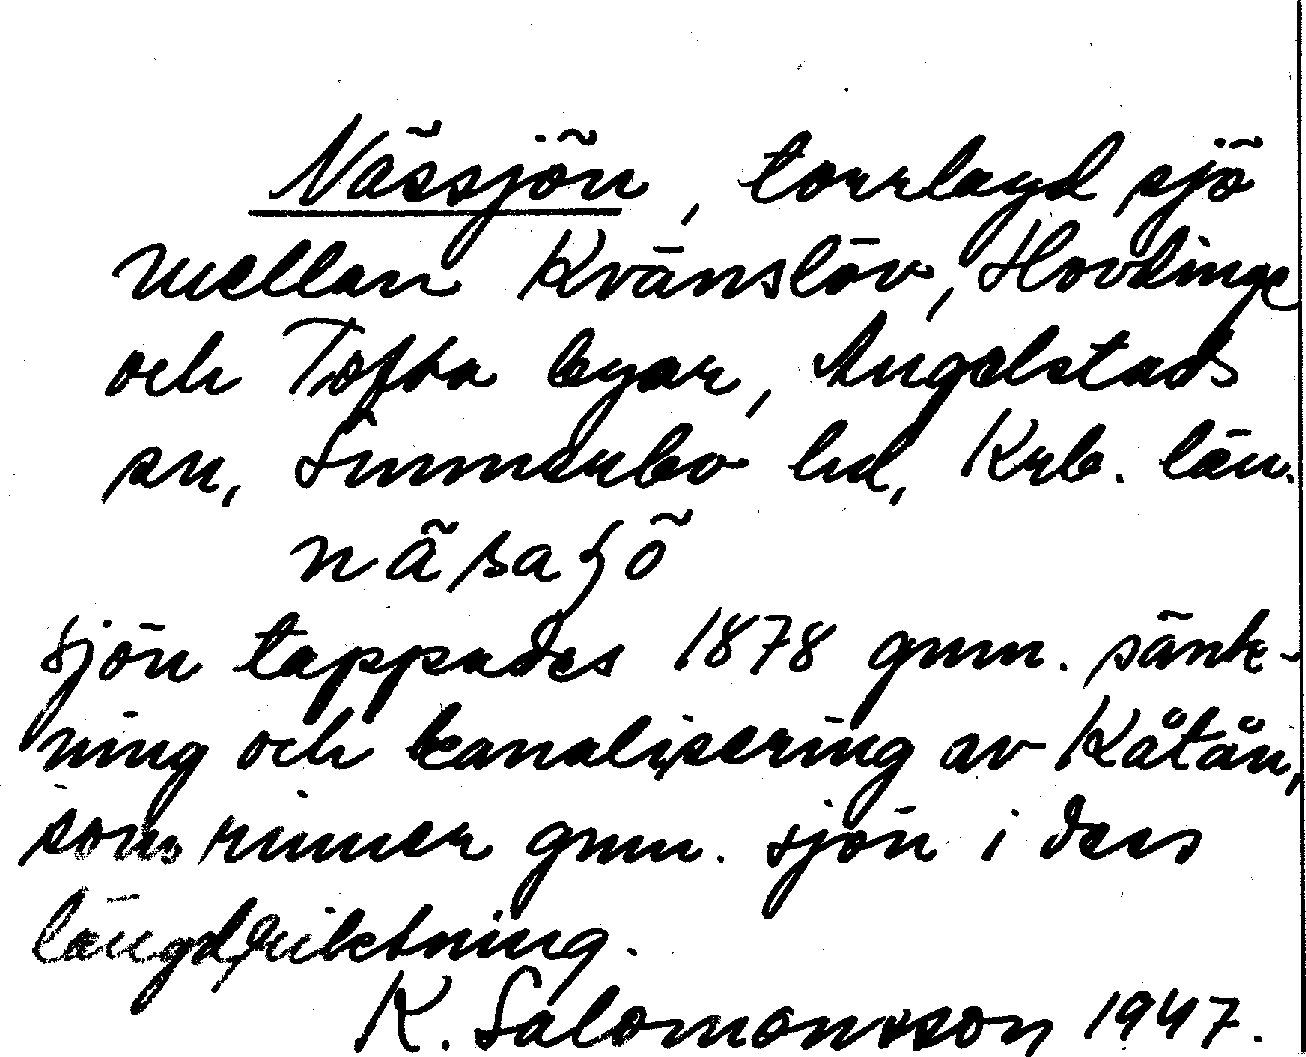 Nässjön, torrlagd sjö
mellan Kvänslöv, Hovdinge
och Tofta byar, Angelstads
sn, Sunnerbo hd, Krb. län.
sjön tappades 1878 gnm. sänk-
ning och kanalisering av Kåtån,
som rinner gnm. sjön i dess
längdriktning.
K. Salomonsson 1947.